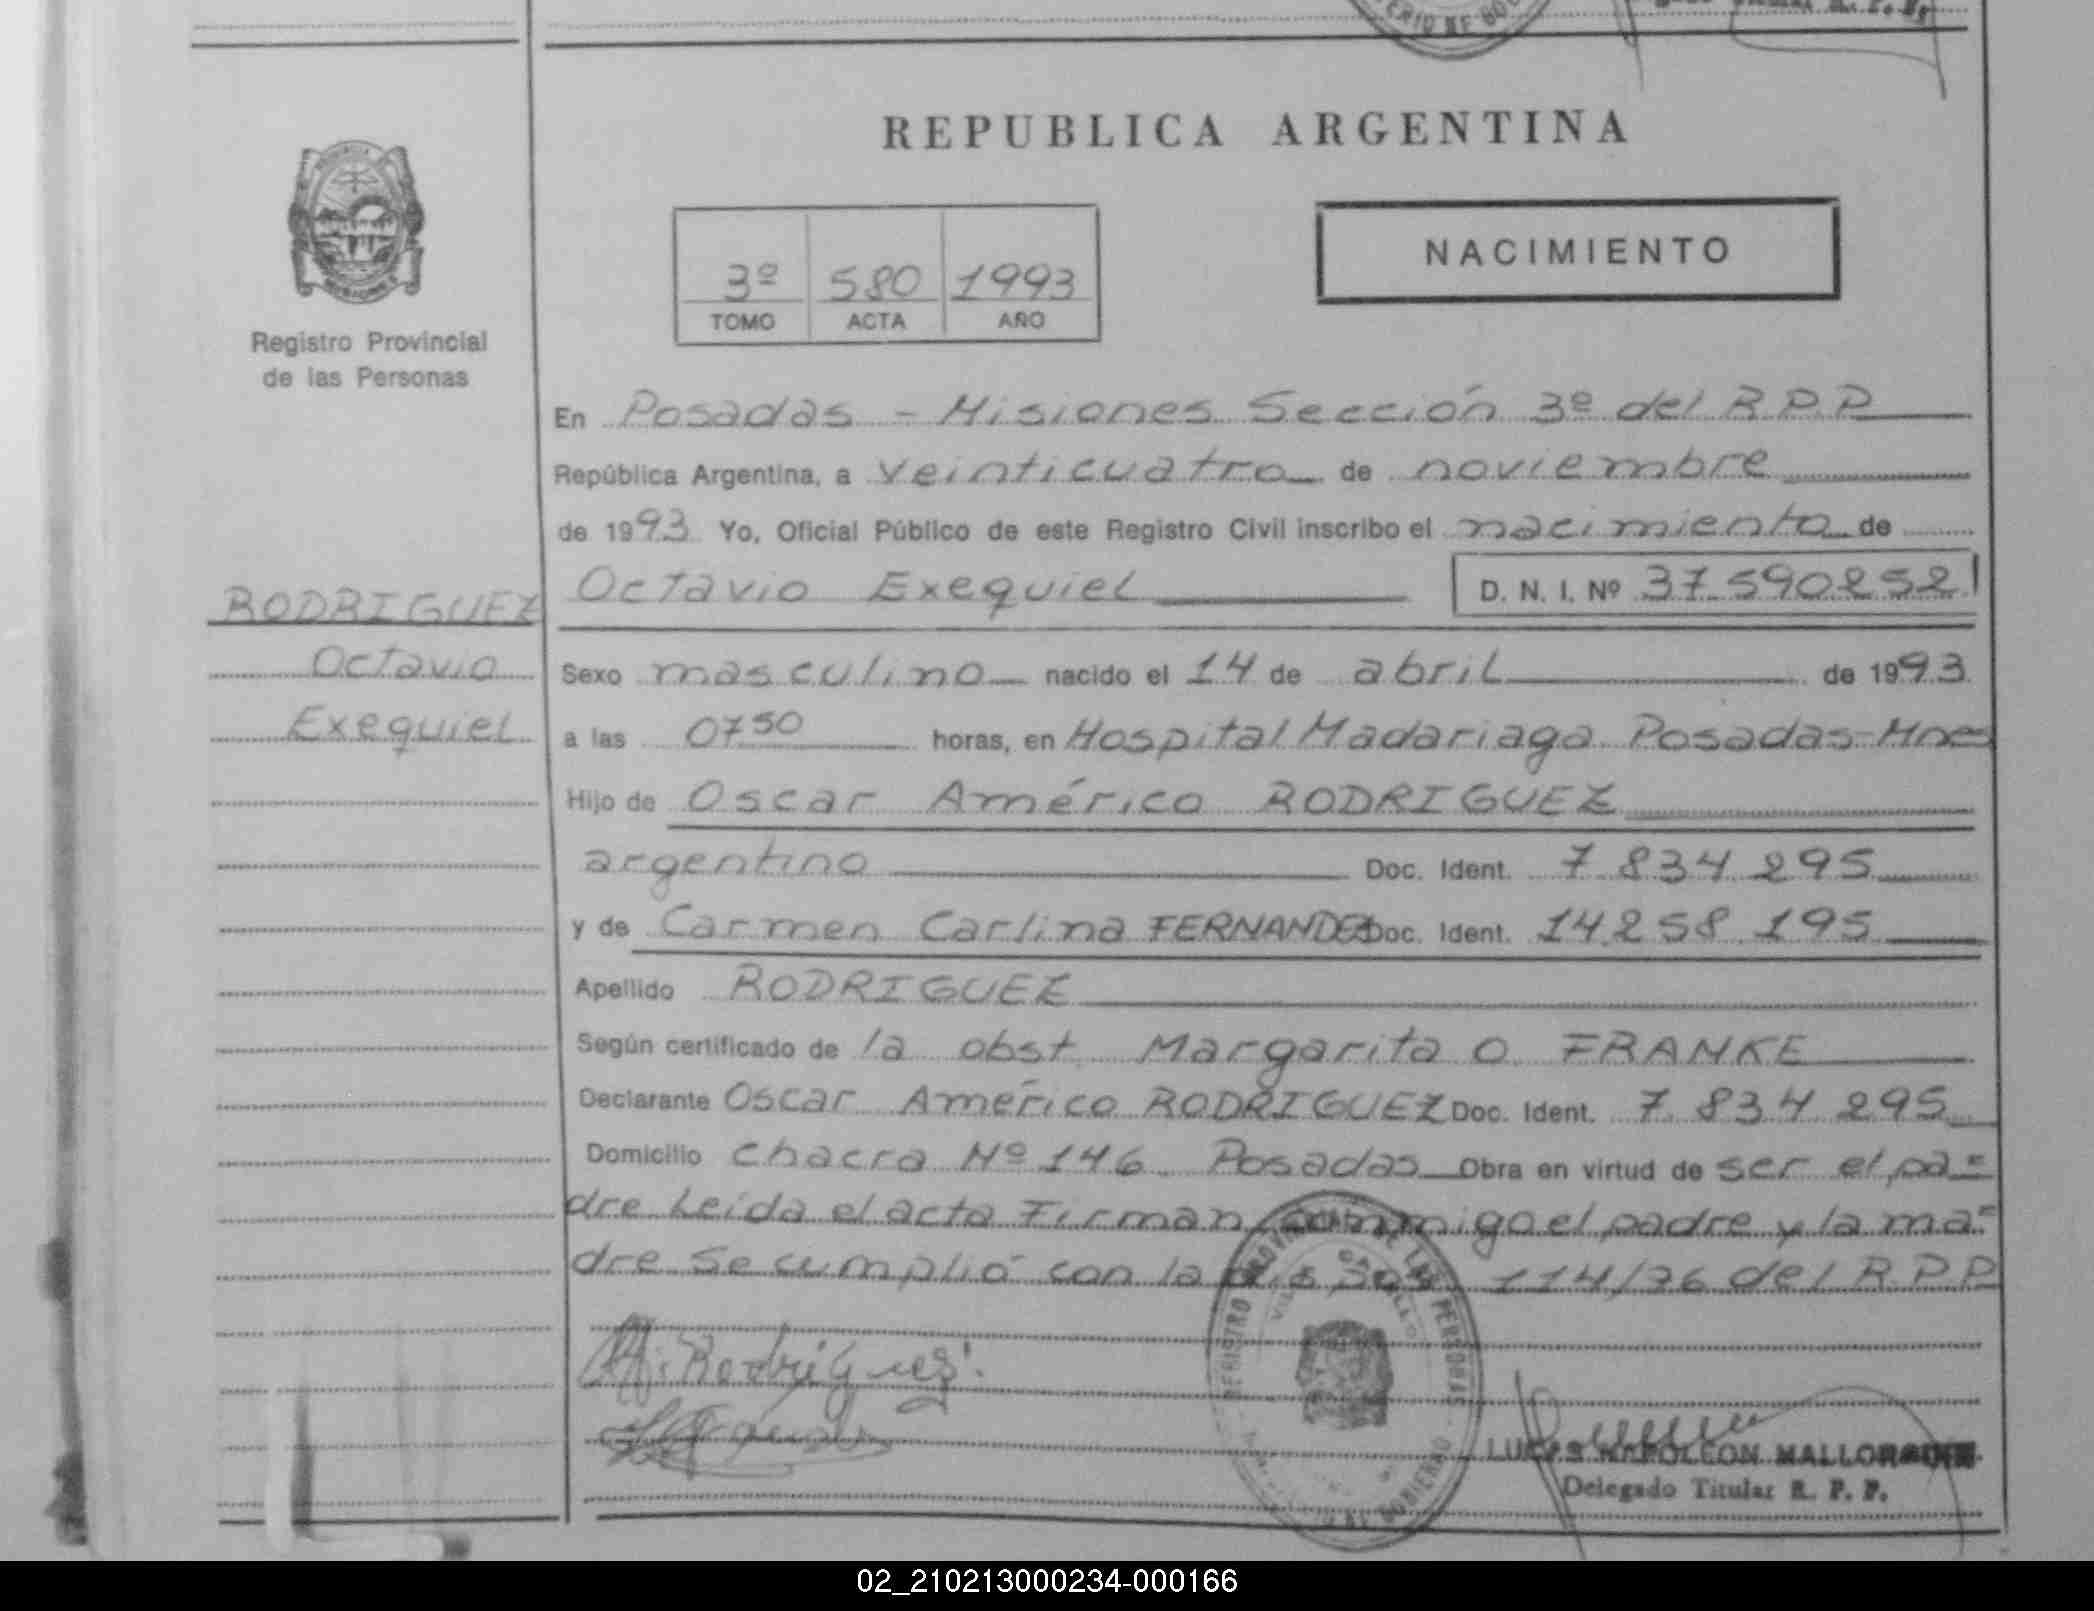 REPUBLICA ARGENTINA
3º 580 1993
TOMO ACTA AÑO
NACIMIENTO
Registro Provincial
de las Personas
RODRIGUEZ
Octavio
Exequiel
En Posadas - Misiones Sección 3º del R.P.P
República Argentina, a veinticuatro de noviembre
de 1993 Yo, Oficial Público de este Registro Civil inscribo el nacimiento de
Octavio Exequiel D. N. I. Nº 37.590252
Sexo masculino nacido el 14 de abril de 1993
a las 0750 horas, en Hospital Madariaga Posadas-Mnes
Hijo de Oscar Américo RODRIGUEZ
argentino Doc. Ident. 7.834.295
y de Carmen Carlina FERNANDEZ Doc. Ident. 14.258.195
Apellido RODRIGUEZ
Según certificado de la obst. Margarita O. FRANKE
Declarante Oscar Américo RODRIGUEZ Doc. Ident. 7.834.295
Domicilio chacra Nº 146 Posadas Obra en virtud de ser el pa=
dre Leída el acta Firman conmigo el padre y la ma=
dre Se cumplió con la 114/76 del R.P.P
Rodríguez
REGISTRO PROVINCIAL DE LAS PERSONAS
LUCAS NAPOLEON
Delegado Titular R. P. P.
02_210213000234-000166